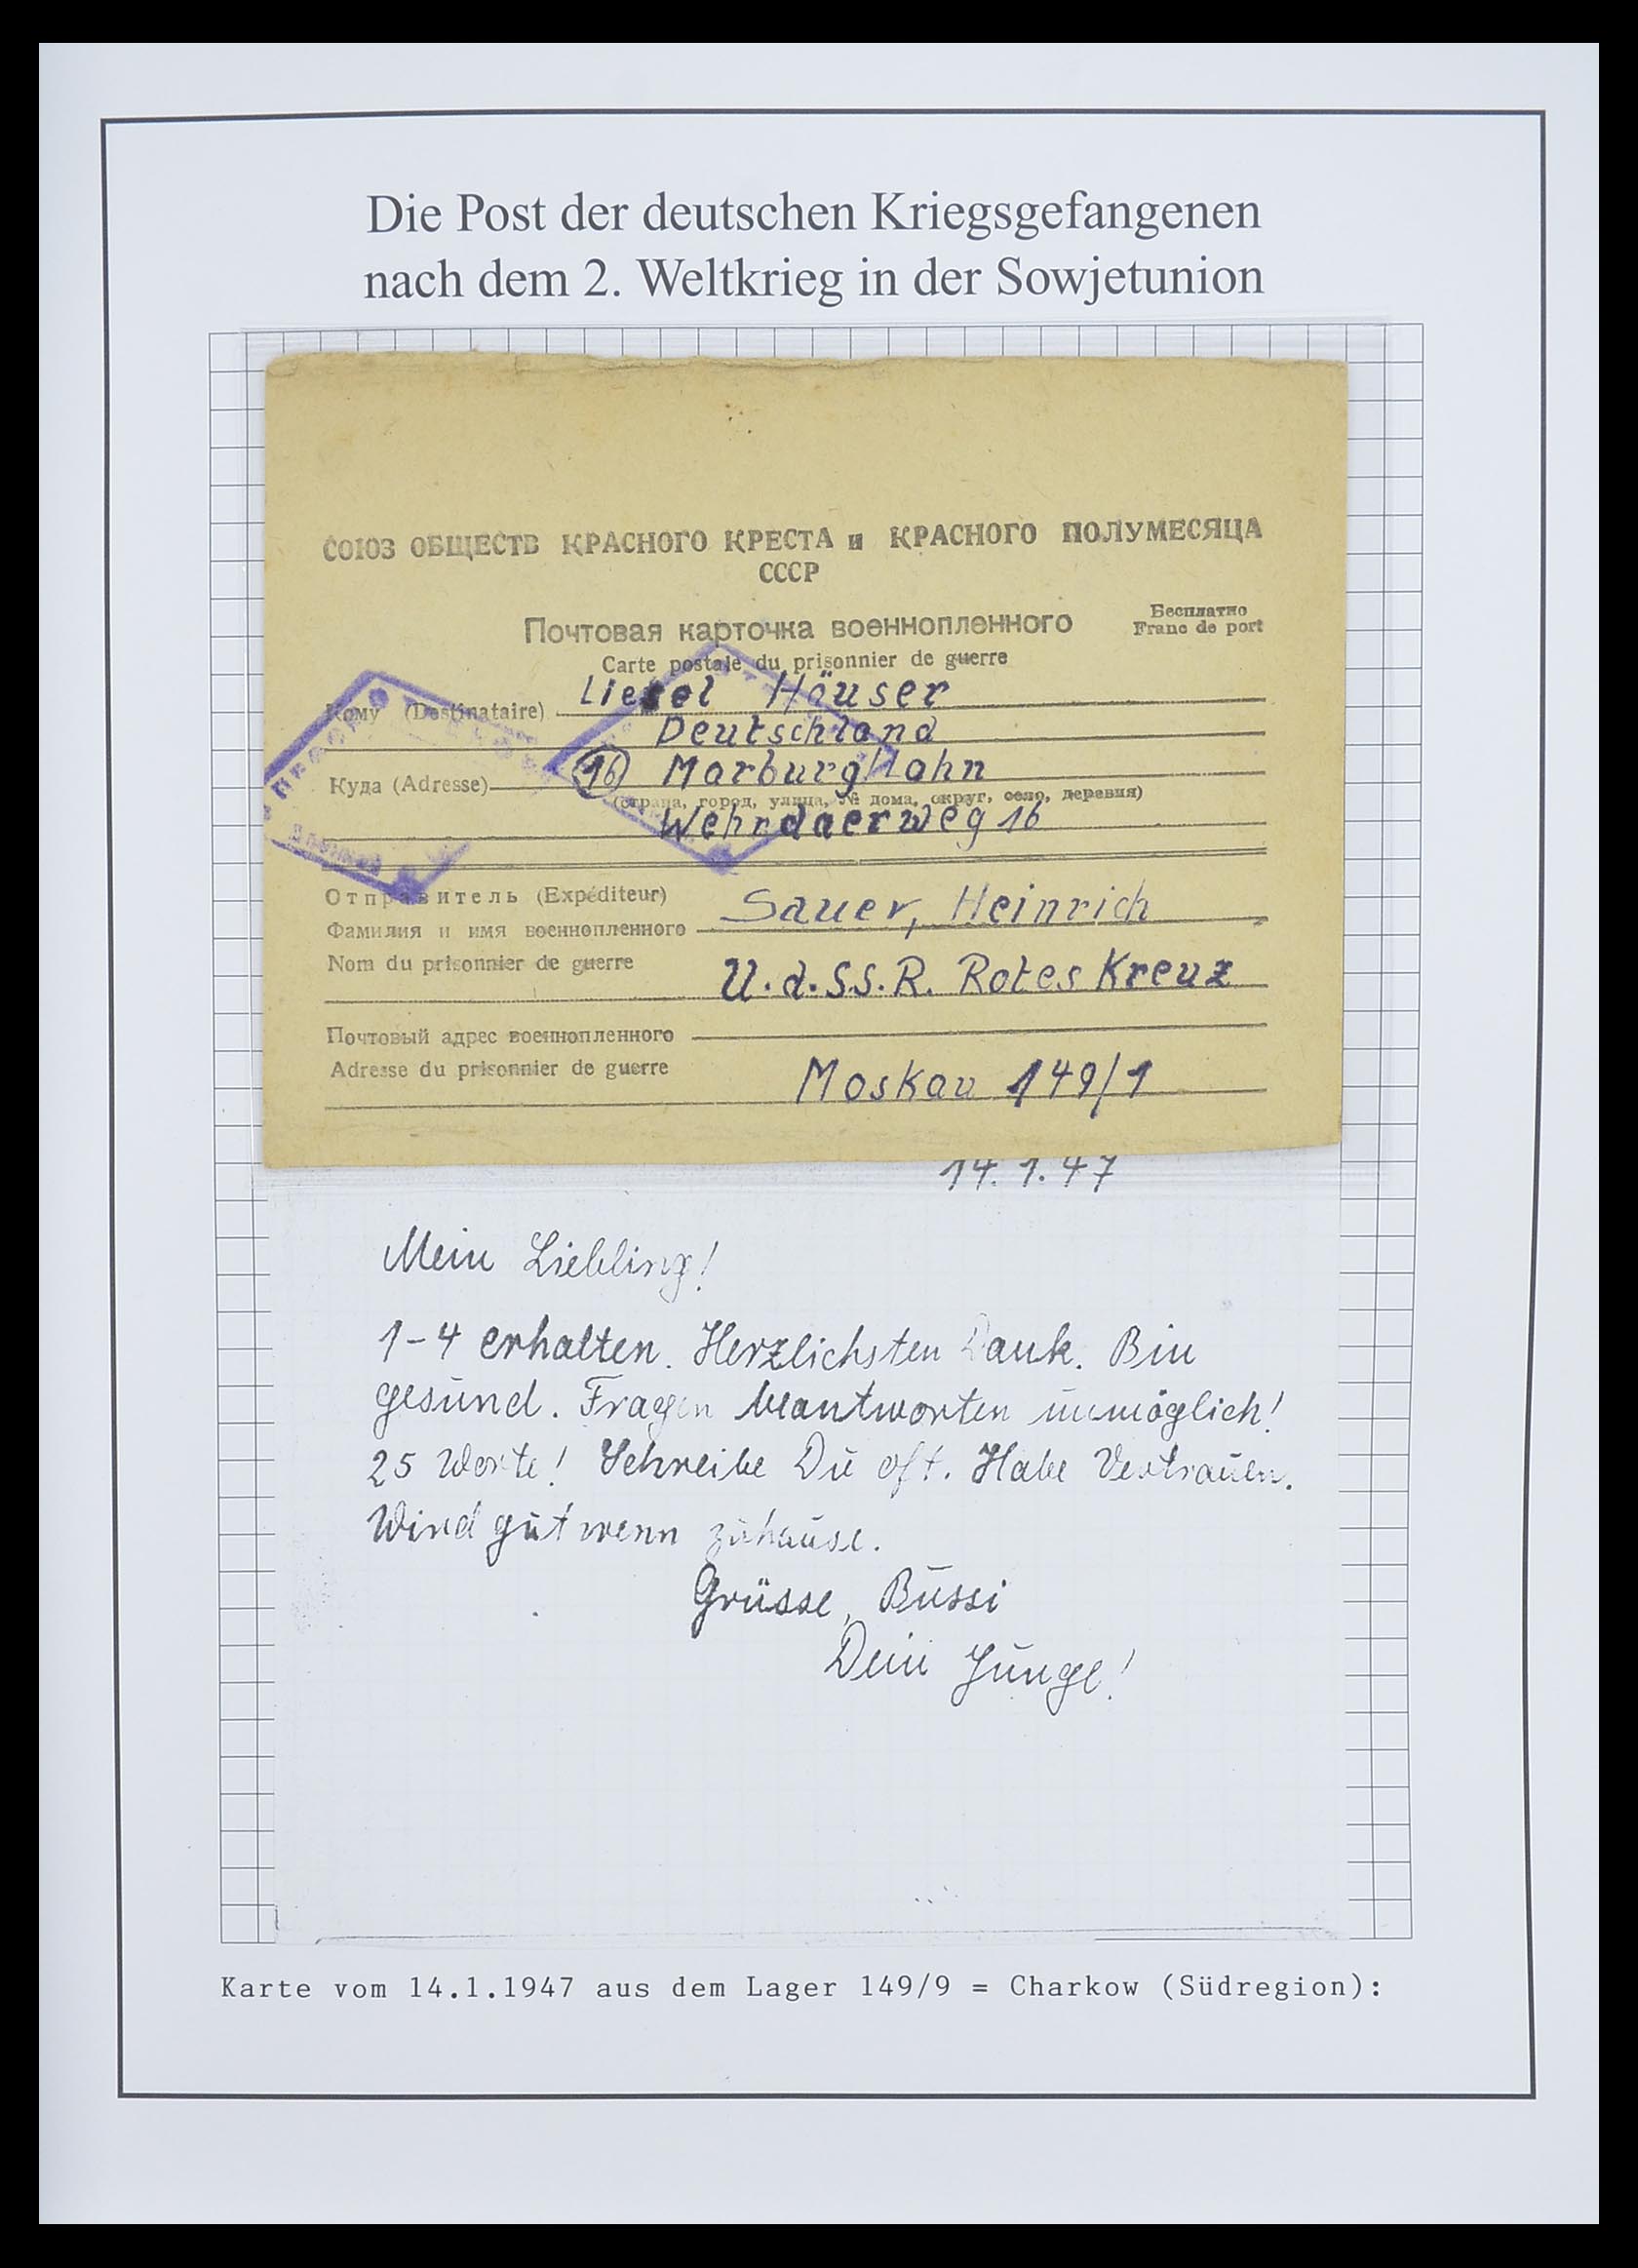 Die Post der deutschen Kriegsgefangenen
nach dem 2. Weltkrieg in der Sowjetunion
СОЮЗ ОБЩЕСТВ КРАСНОГО КРЕСТА и КРАСНОГО ПОЛУМЕСЯЦА
СССР
Почтовая карточка военнопленного
Бесплатно
Franc de port
Carte postale du prisonnier de guerre
Кому (Destinataire) Liesel Häuser
Deutschland
Куда (Adresse) (16) Marburg/Lahn
(страна, город, улица, № дома, округ, село, деревня)
Wehrdaerweg 16
Отправитель (Expéditeur)
Фамилия и имя военнопленного Sauer, Heinrich
Nom du prisonnier de guerre
U.d.S.S.R. Rotes Kreuz
Почтовый адрес военнопленного
Adresse du prisonnier de guerre
Moskau 149/1
14.1.47
Mein Liebling!
1-4 erhalten. Herzlichsten Dank. Bin
gesund. Fragen beantworten unmöglich!
25 Worte! Schreibe Du oft. Habe Vertrauen.
Wird gut wenn zuhause.
Grüsse, Bussi
Dein Junge!
Karte vom 14.1.1947 aus dem Lager 149/9 = Charkow (Südregion):